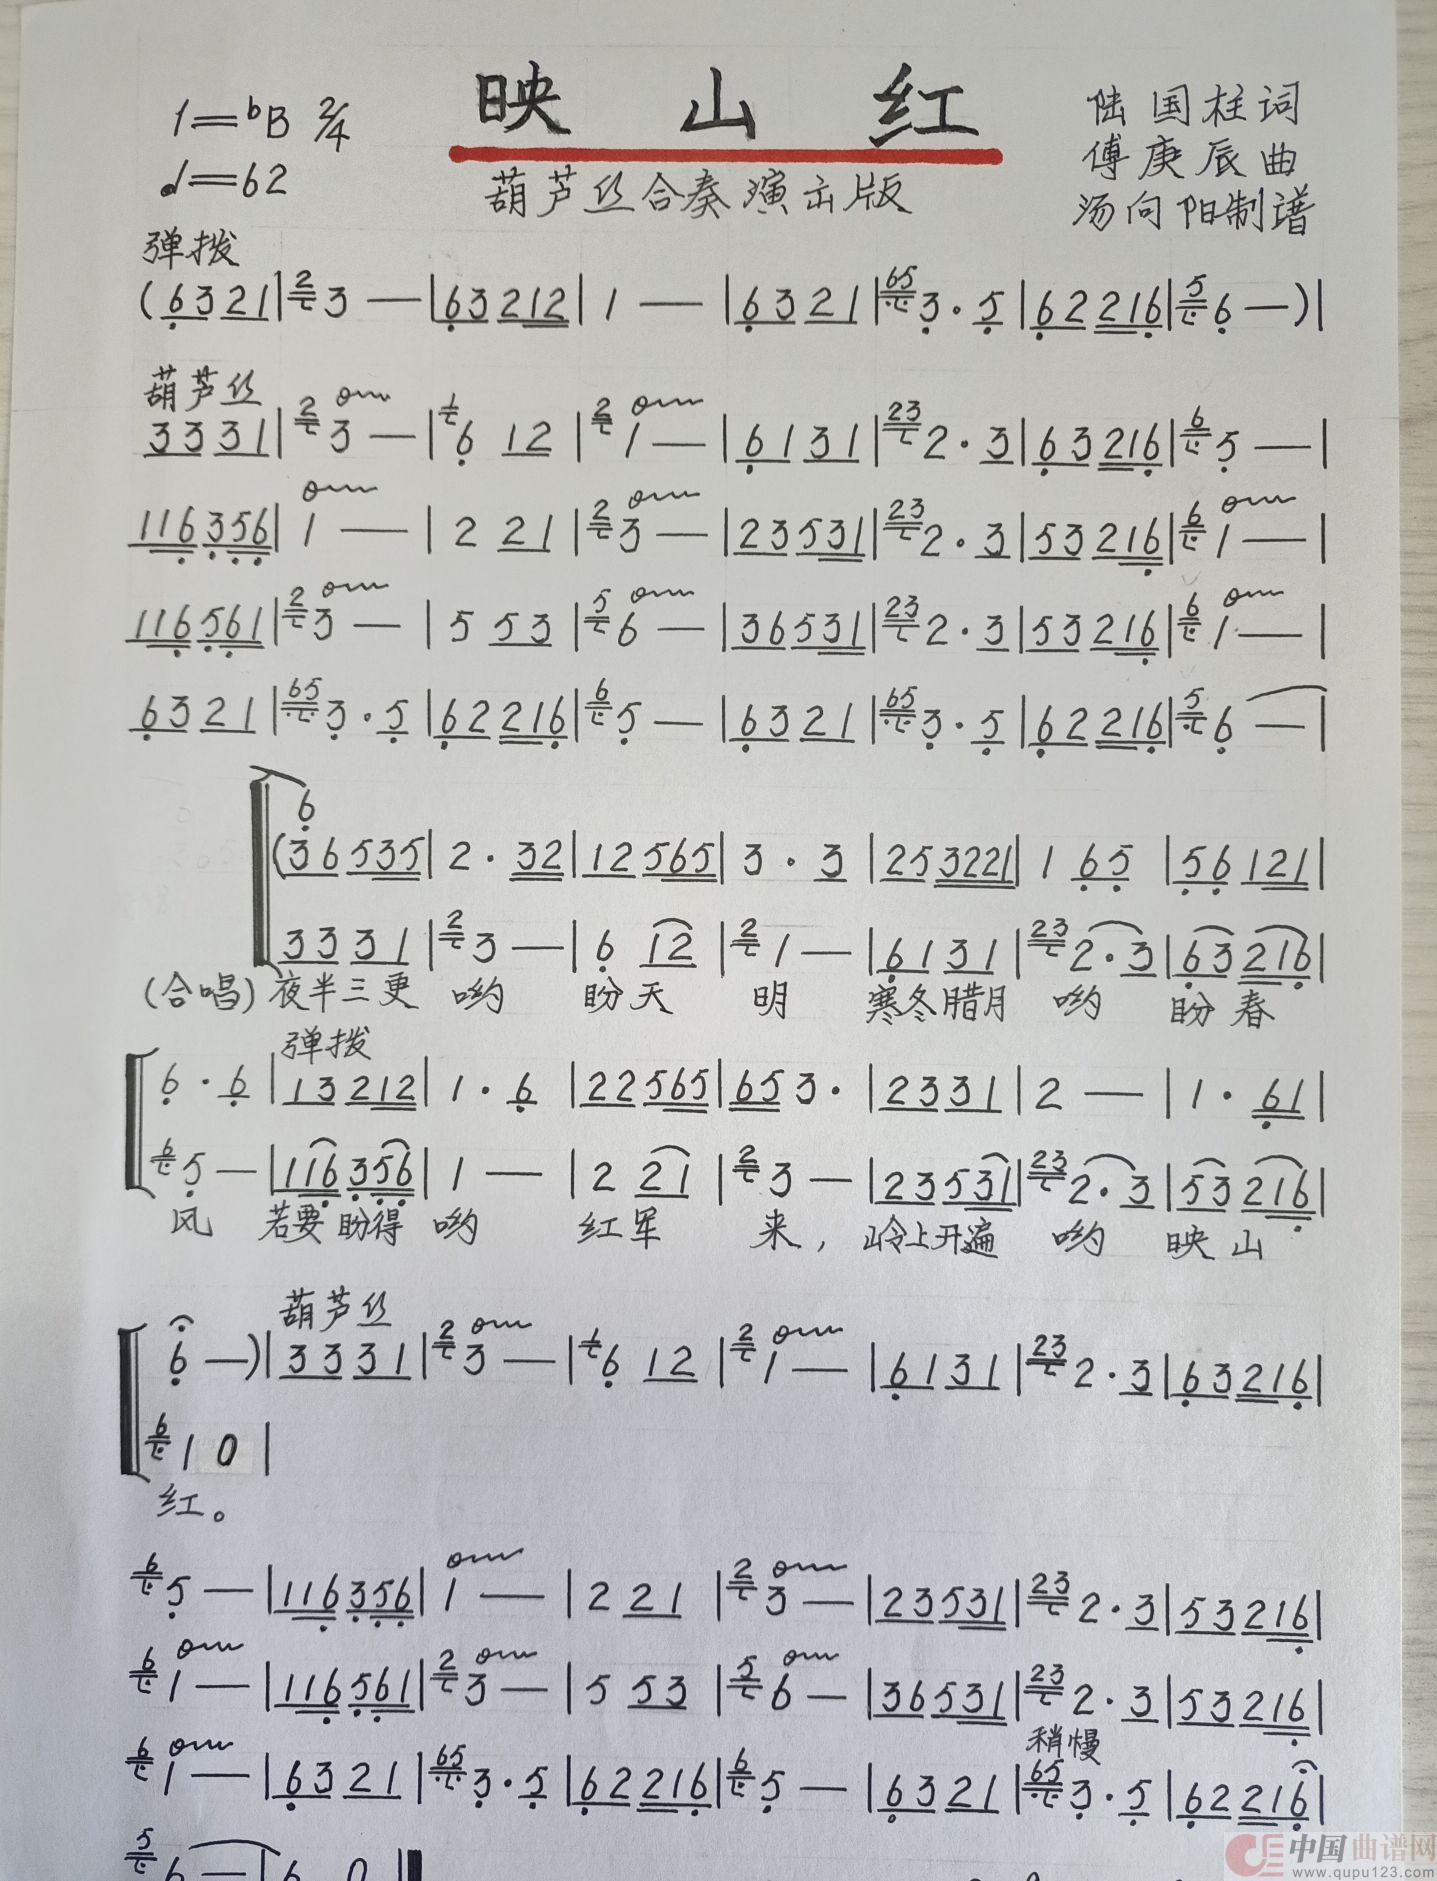 映山红
1=bB 2/4
♩=62
葫芦丝合奏演出版
陆国柱词
傅庚辰曲
汤向阳制谱
弹拨
(6 3 2 1 | 2 3 — | 6 3 2 1 2 | 1 — | 6 3 2 1 | 65 3 · 5 | 6 2 2 1 6 | 5 6 — ) |
葫芦丝
3 3 3 1 | 2 3 — | 1 6 1 2 | 2 1 — | 6 1 3 1 | 23 2 · 3 | 6 3 2 1 6 | 6 5 — |
1 1 6 3 5 6 | 1 — | 2 2 1 | 2 3 — | 2 3 5 3 1 | 23 2 · 3 | 5 3 2 1 6 | 6 1 — |
1 1 6 5 6 1 | 2 3 — | 5 5 3 | 5 6 — | 3 6 5 3 1 | 23 2 · 3 | 5 3 2 1 6 | 6 1 — |
6 3 2 1 | 65 3 · 5 | 6 2 2 1 6 | 6 5 — | 6 3 2 1 | 65 3 · 5 | 6 2 2 1 6 | 5 6 — |
6
(3 6 5 3 5 | 2 · 3 2 | 1 2 5 6 5 | 3 · 3 | 2 5 3 2 2 1 | 1 6 5 | 5 6 1 2 1 |
3 3 3 1 | 2 3 — | 6 1 2 | 2 1 — | 6 1 3 1 | 23 2 · 3 | 6 3 2 1 6 |
(合唱) 夜半三更 哟 盼天 明 寒冬腊月 哟 盼春
弹拨
6 · 6 | 1 3 2 1 2 | 1 · 6 | 2 2 5 6 5 | 6 5 3 · | 2 3 3 1 | 2 — | 1 · 6 1 |
6 5 — | 1 1 6 3 5 6 | 1 — | 2 2 1 | 2 3 — | 2 3 5 3 1 | 23 2 · 3 | 5 3 2 1 6 |
风 若要盼得 哟 红军 来, 岭上开遍 哟 映山
葫芦丝
6 — ) | 3 3 3 1 | 2 3 — | 1 6 1 2 | 2 1 — | 6 1 3 1 | 23 2 · 3 | 6 3 2 1 6 |
6 1 0 |
红。
6 5 — | 1 1 6 3 5 6 | 1 — | 2 2 1 | 2 3 — | 2 3 5 3 1 | 23 2 · 3 | 5 3 2 1 6 |
6 1 — | 1 1 6 5 6 1 | 2 3 — | 5 5 3 | 5 6 — | 3 6 5 3 1 | 23 2 · 3 | 5 3 2 1 6 |
稍慢
6 1 — | 6 3 2 1 | 65 3 · 5 | 6 2 2 1 6 | 6 5 — | 6 3 2 1 | 65 3 · 5 | 6 2 2 1 6 |
5 6 — | 6 0 ‖
中国曲谱网
www.qupu123.com